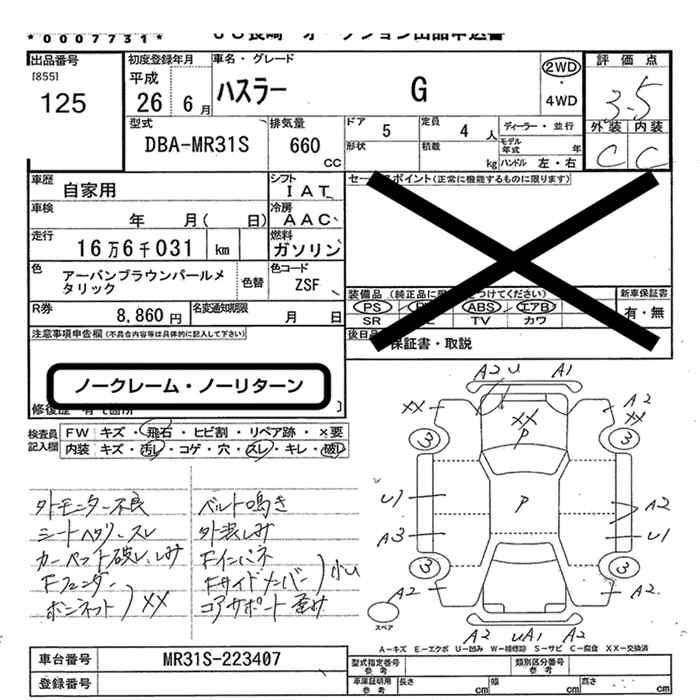 *0007731*
JU長崎 オークション出品申込書
出品番号
[855]
125
初度登録年月
平成
26 年 6 月
車名・グレード
ハスラー G
2WD
・
4WD
評価点
3.5
外装 内装
C C
型式
DBA-MR31S
排気量
660
CC
ドア 5
定員 4 人
ディーラー・並行
形状
積載 kg
モデル年式 年
ハンドル 左・右
車歴
自家用
シフト
IAT
車検
年 月( 日)
冷房
AAC
走行
16万6千031 km
燃料
ガソリン
色
アーバンブラウンパールメタリック
色替
色コード
ZSF
R券
8,860 円
名変通知期限
月 日
セールスポイント(正常に機能するものに限ります)
装備品 (純正品に限
をつけてください)
新車保証書
PS ABS エアB
有・無
SR TV カワ
後日
保証書・取説
注意事項申告欄(不具合内容等は具体的に記入して下さい)
ノークレーム・ノーリターン
修復歴
検査員
記入欄
FW キズ・飛石・ヒビ割・リペア跡・×要
内装 キズ・汚レ・コゲ・穴・スレ・キレ・破レ
外モニター不良
シートヘタリ、スレ
カーペット破レ、しみ
Fフェンダー
ボンネット ) XX
ベルト鳴き
外装しみ
Fインパネ
Fサイドメンバー ) 小U
コアサポート 歪み
A2 U A1
XX A2
XX
XX
P
3 3
P
U1 A2
A3 U1
3 3
A2 A2
A2 UA1 A2
スペア
A-キズ E-エクボ U-凹み W-補修跡 S-サビ C-腐食 XX-交換済
車台番号
MR31S-223407
登録番号
型式指定番号
参考
類別区分番号
参考
車庫証明用
参考
長さ cm
幅 cm
高さ cm